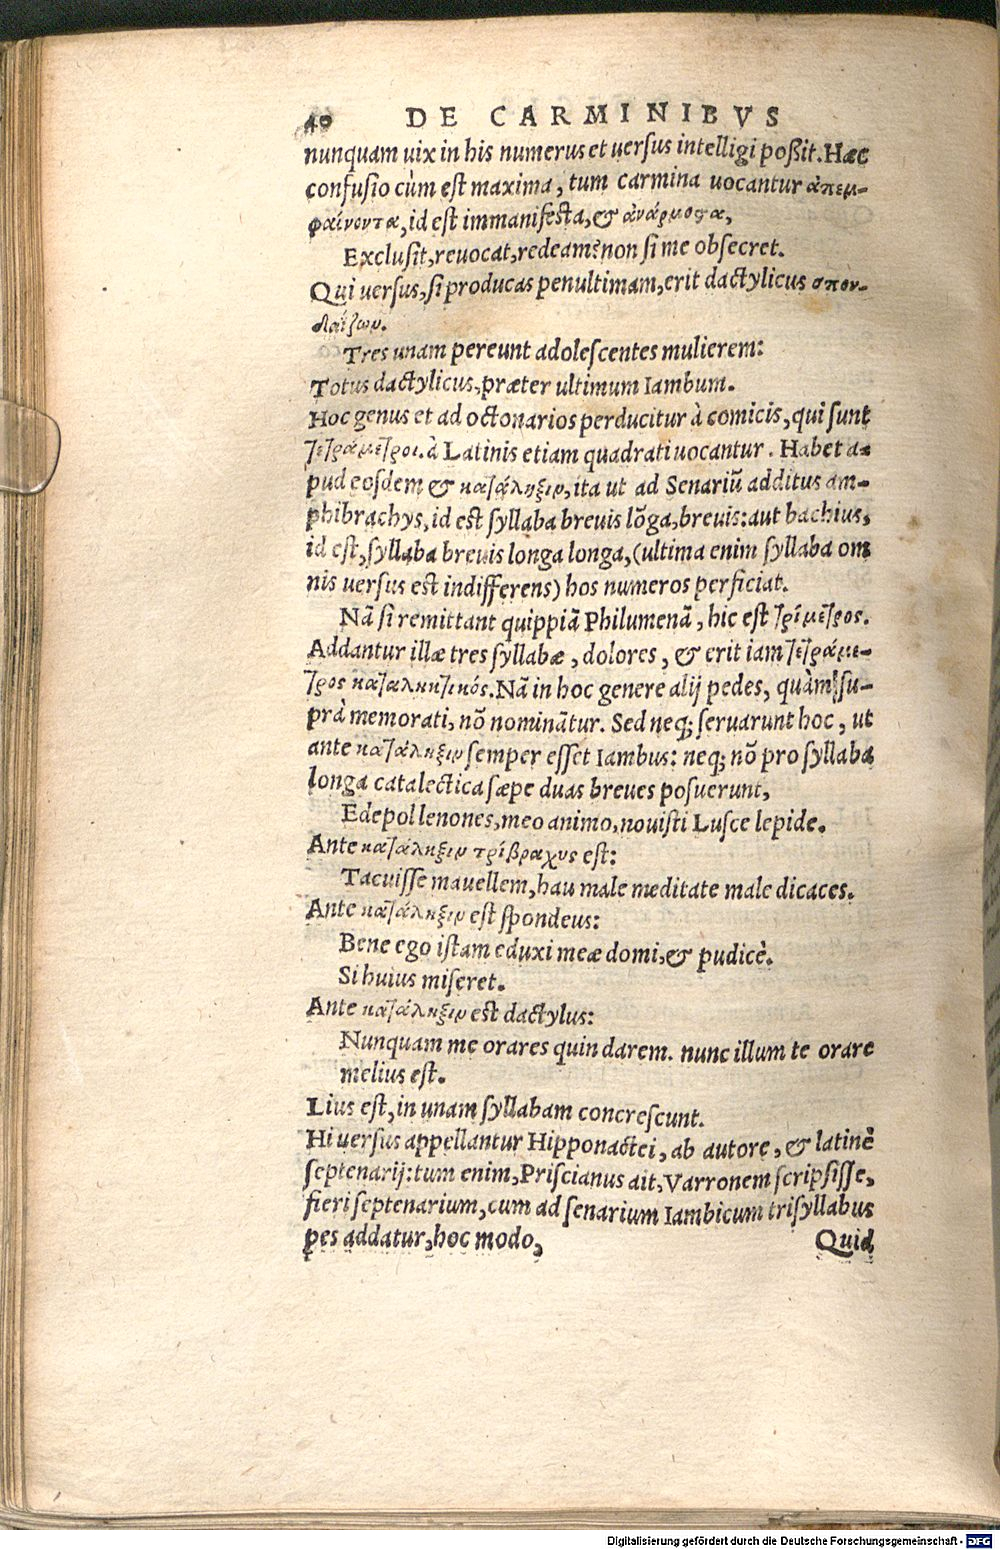 40 DE CARMINIBVS
nunquam uix in his numerus et uersus intelligi poßit. Hæc
confusio cùm est maxima, tum carmina uocantur ἀπεμ-
φαίνοντα, id est immanifesta, & ἀνάρμοστα,
Exclusit, reuocat, redeam? non si me obsecret.
Qui uersus, si producas penultimam, erit dactylicus σπον-
δαΐζων.
Tres unam pereunt adolescentes mulierem:
Totus dactylicus, præter ultimum Iambum.
Hoc genus et ad octonarios perducitur à comicis, qui sunt
τετράμετροι. à Latinis etiam quadrati uocantur. Habet a-
pud eosdem & κατάληξιν, ita ut ad Senariũ additus am-
phibrachys, id est syllaba breuis lõga, breuis: aut bachius,
id est, syllaba breuis longa longa, (ultima enim syllaba om
nis uersus est indifferens) hos numeros perficiat.
Nã si remittant quippiã Philumenã, hic est τρίμετρος.
Addantur illæ tres syllabæ, dolores, & erit iam τετράμε-
τρος καταληκτικός. Nã in hoc genere alij pedes, quàm su-
prà memorati, nõ nominãtur. Sed neq; seruarunt hoc, ut
ante κατάληξιν semper esset Iambus: neq; nõ pro syllaba
longa catalectica sæpe duas breues posuerunt,
Edepol lenones, meo animo, nouisti Lusce lepide.
Ante κατάληξιν τρίβραχυς est:
Tacuisse mauellem, hau male meditate male dicaces.
Ante κατάληξιν est spondeus:
Bene ego istam eduxi meæ domi, & pudicè.
Si huius miseret.
Ante κατάληξιν est dactylus:
Nunquam me orares quin darem. nunc illum te orare
melius est.
Lius est, in unam syllabam concrescunt.
Hi uersus appellantur Hipponactei, ab autore, & latinè
septenarij: tum enim, Priscianus ait, Varronem scripsisse,
fieri septenarium, cum ad senarium Iambicum trisyllabus
pes addatur, hoc modo,
Quid
Digitalisierung gefördert durch die Deutsche Forschungsgemeinschaft - DFG